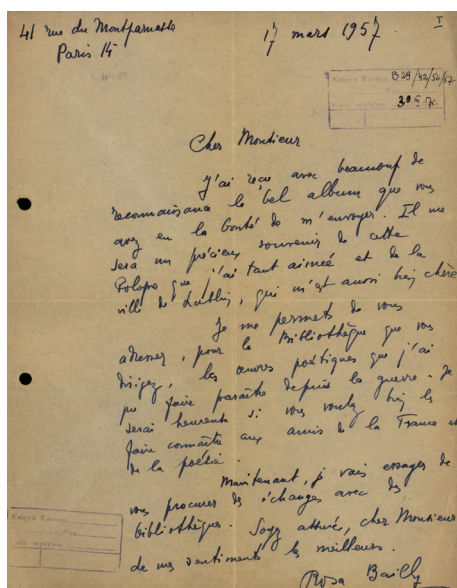 41 rue du Montparnasse
Paris 14
17 mars 1957
I
Księga Koresp.
B 29/42/56/57
Poz.
data wpływu 30 III
Cher Monsieur
J'ai reçu avec beaucoup de
reconnaissance le bel album que vous
avez eu la bonté de m'envoyer. Il me
sera un précieux souvenir de cette
Pologne que j'ai tant aimée et de la
ville de Lublin, qui m'est aussi bien chère
Je me permets de vous
adresser, pour la Bibliothèque que vous
dirigez, les œuvres poétiques que j'ai
pu faire paraître depuis la guerre. Je
serai heureuse si vous voulez bien les
faire connaître aux amis de la France et
de la poésie.
Maintenant, je vais essayer de
vous procurer des échanges avec des
bibliothèques. Soyez assuré, cher Monsieur
de mes sentiments les meilleurs.
Rosa Bailly
Księga Koresp.
Poz.
data wpływu